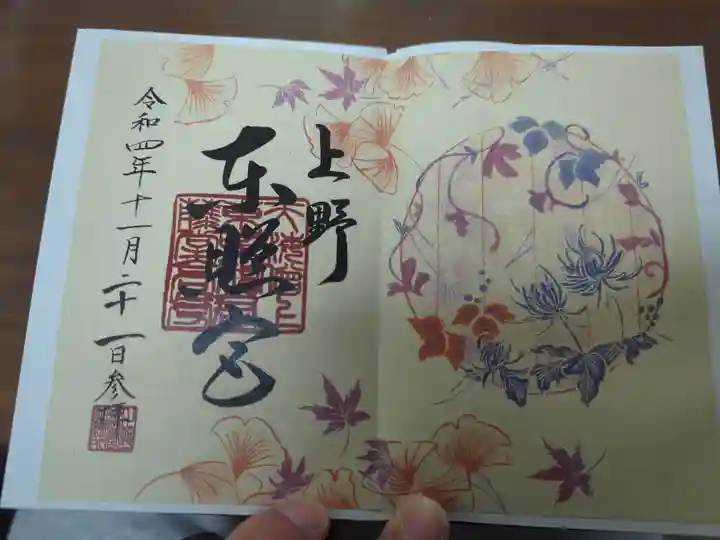 上野
東照宮
令和四年十一月二十一日参拝